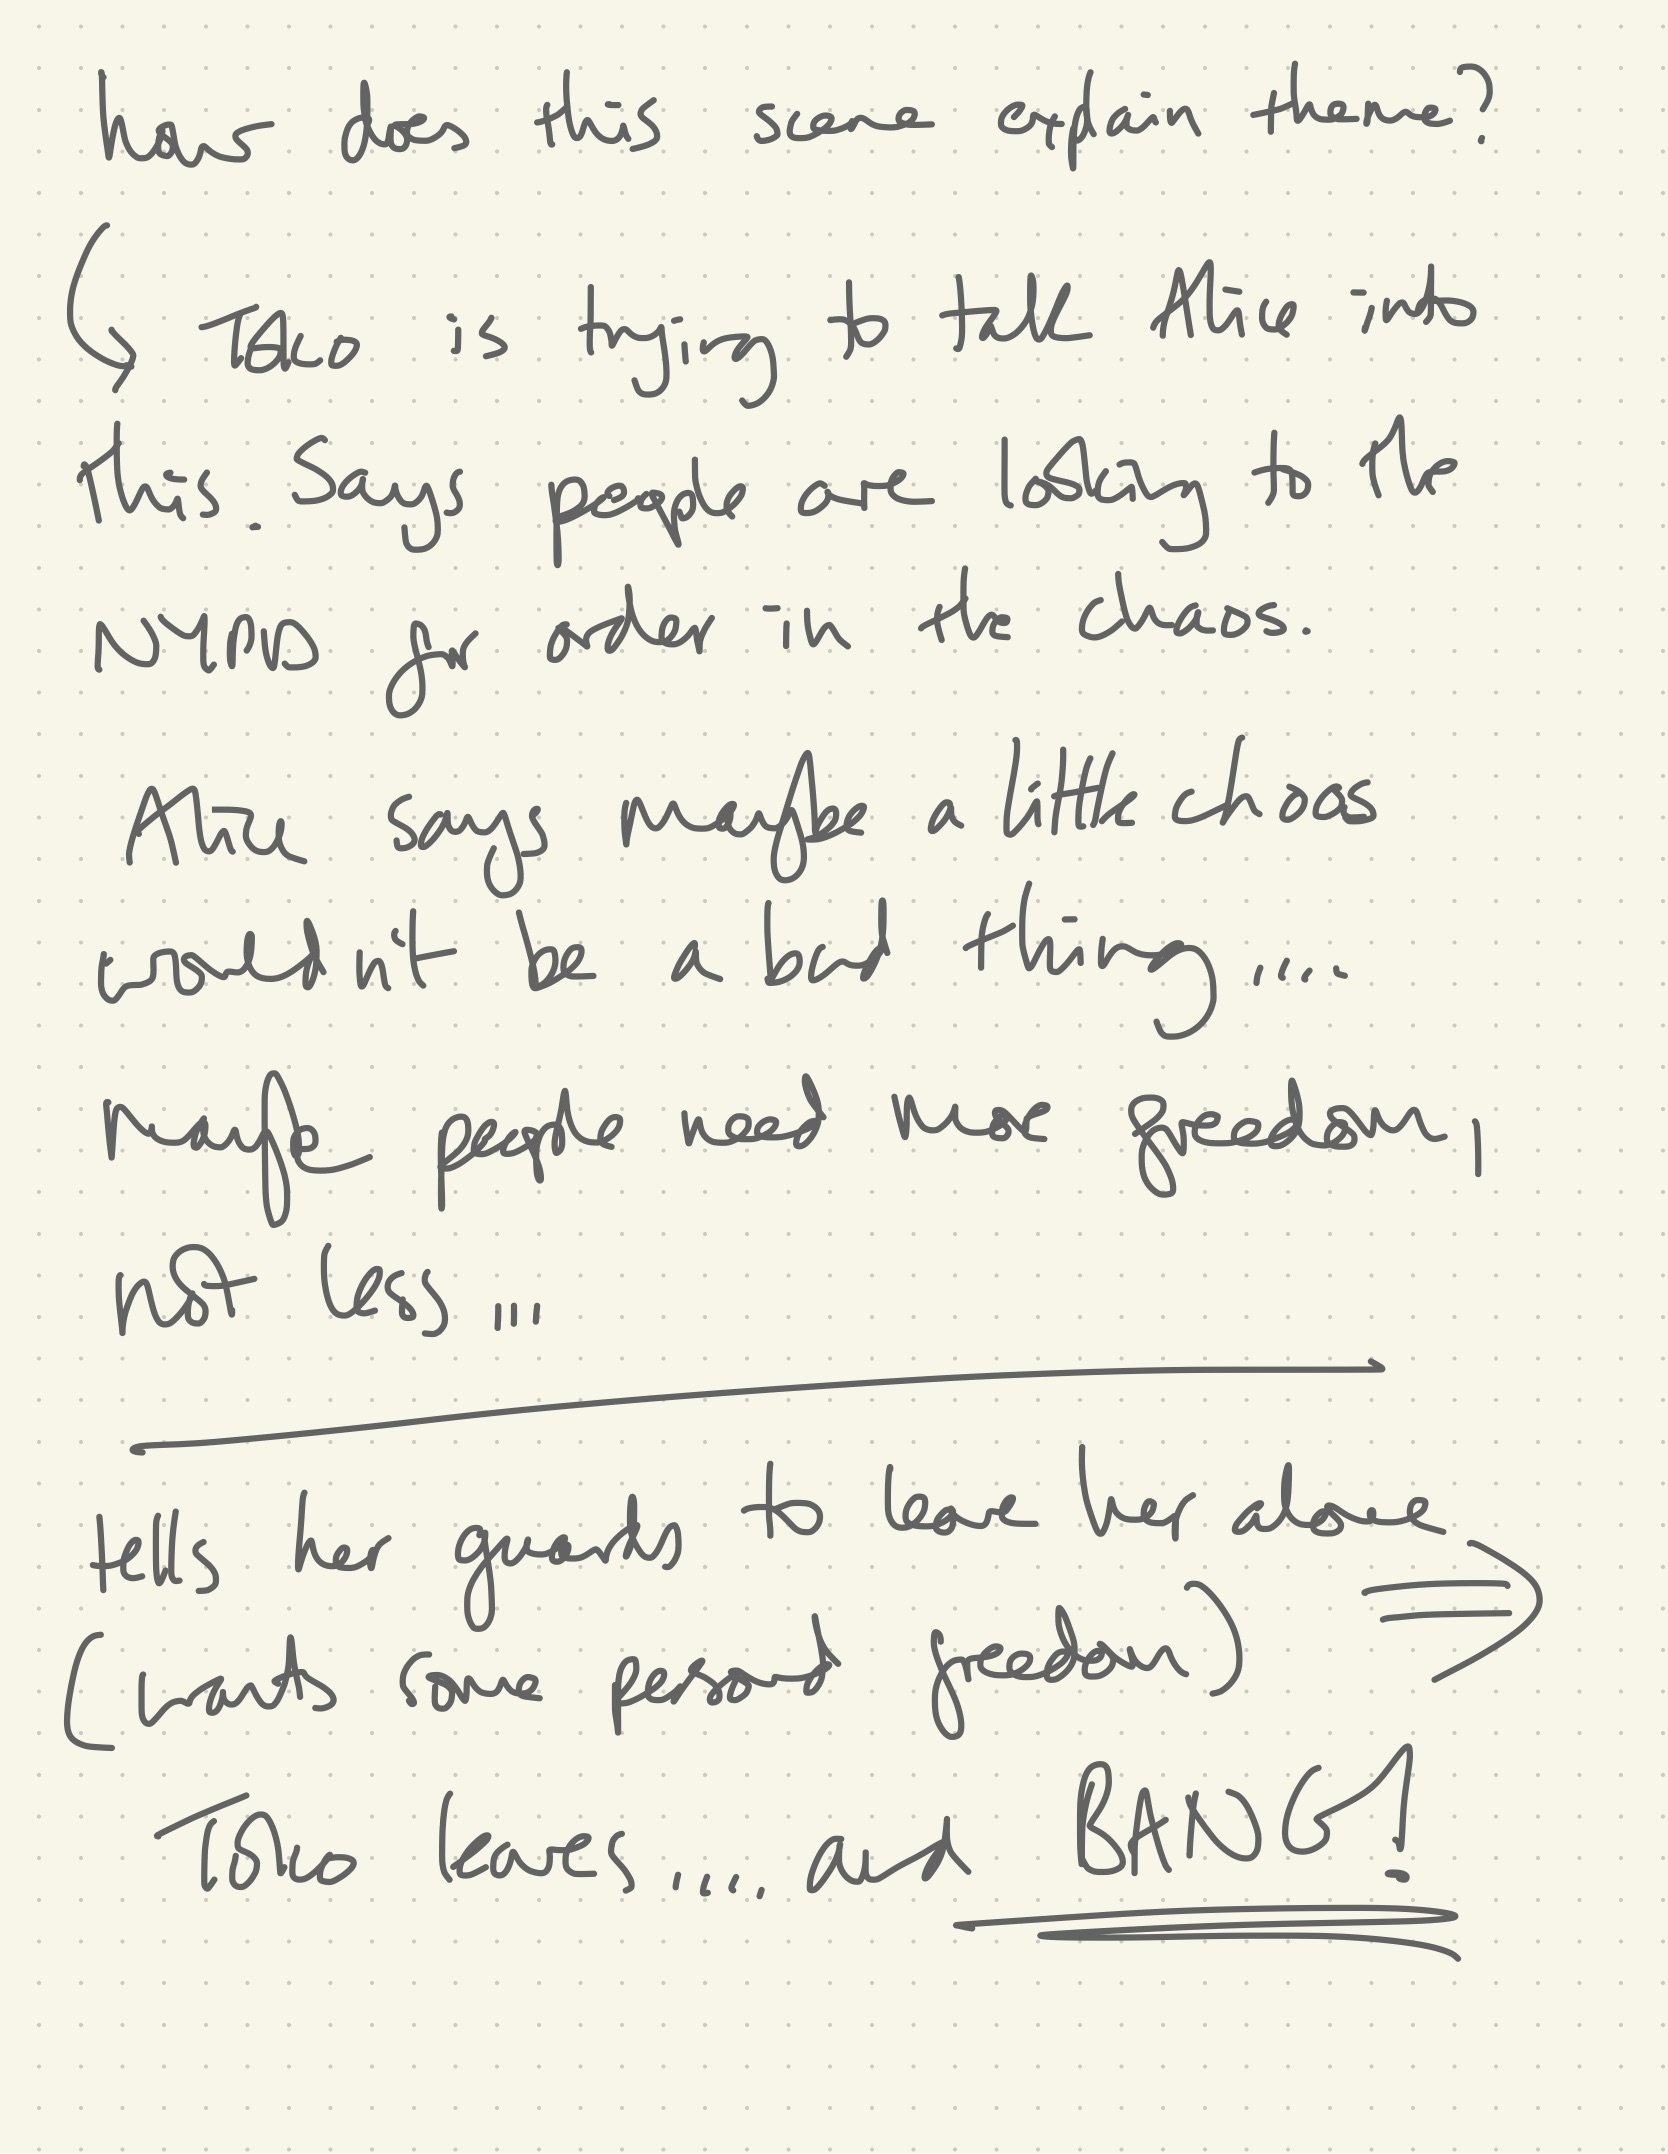 how does this scene explain theme?
is trying to talk Alice into
this. Says people are looking to the
NYPD for order in the chaos.
Alice says maybe a little chaos
wouldn't be a bad thing....
maybe people need more freedom,
not less...
tells her guards to leave her alone
(wants some personal freedom)
leaves.... and BANG!